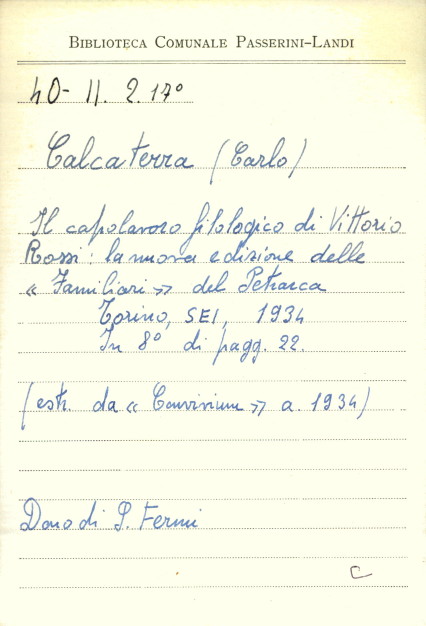 BIBLIOTECA COMUNALE PASSERINI-LANDI
40- II. 2. 17°
Calcaterra (Carlo)
Il capolavoro filologico di Vittorio
Rossi: la nuova edizione delle
« Familiari » del Petrarca
Torino, SEI, 1934
In 8° di pagg. 22.
(estr. da « Convivium » a. 1934)
Dono di S. Fermi
C